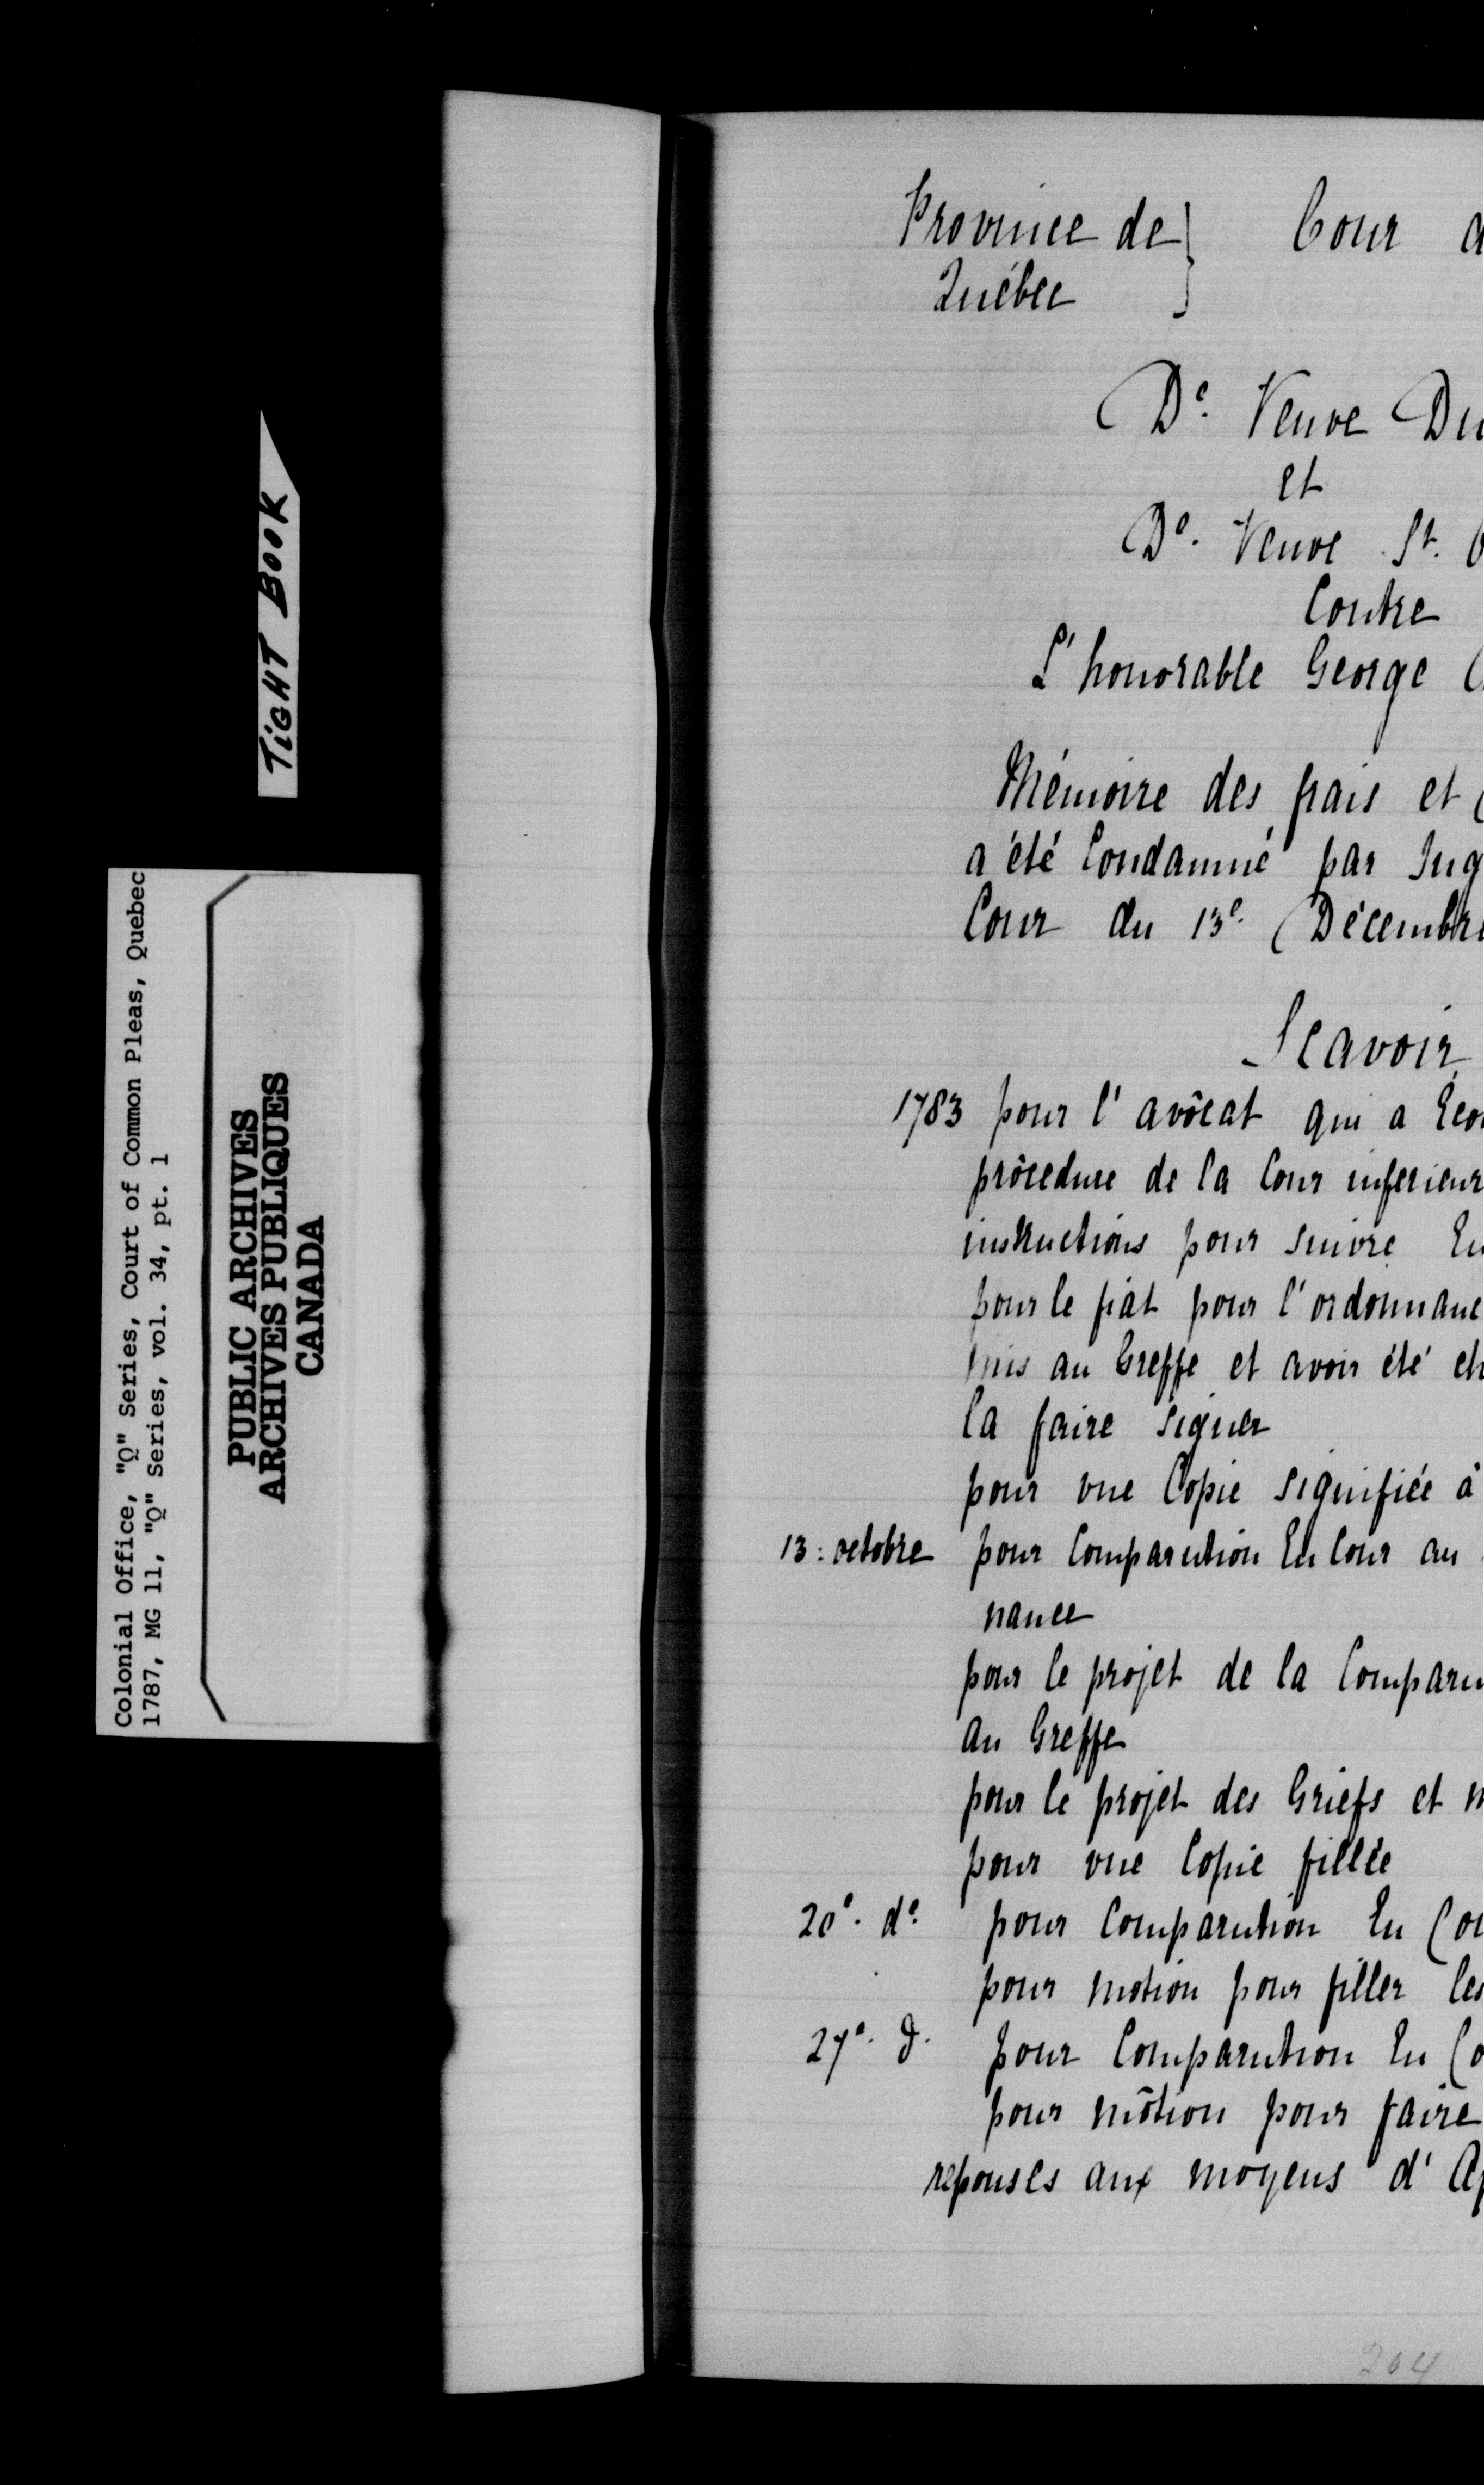 TIGHT BOOK
Colonial Office, "Q" Series, Court of Common Pleas, Quebec
1787, MG 11, "Q" Series, vol. 34, pt. 1
PUBLIC ARCHIVES
ARCHIVES PUBLIQUES
CANADA
Province de } Cour
Québec
De. Veuve
et
De. Veuve St.
Contre
L'honorable George
Mémoire des frais et
a été Condamné par
Cour du 13e. Décembre
Scavoir
1783 pour l'avôcat qui a
prôcedure de la Cour
instructions pour suivre
pour le fiat pour
mis au Greffe et avoir été
la faire signer
pour une Copie signifiée à
13: octobre pour Comparution En Cour au
nance
pour le projet de la
au Greffe
pour le projet des Griefs et
pour une Copie fillée
20e. do. pour Comparution En
pour motion pour filler
27e. d. pour Comparution En
pour môtion pour faire
reponses aux moyens
204